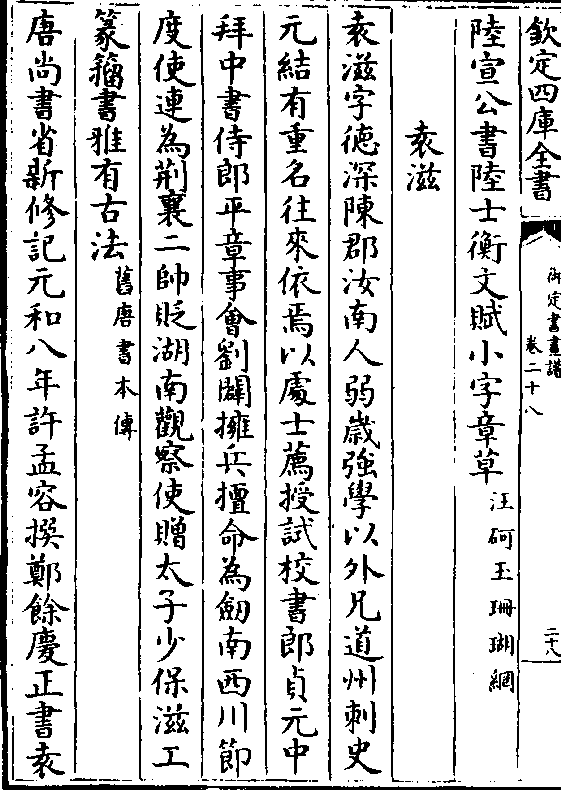 欽定四庫全書
御定書畫譜
卷二十八
二十八
陸宣公書陸士衡文賦小字章草汪砢玉珊瑚網
袁滋
袁滋字德深陳郡汝南人弱歲強學以外兄道州刺史
元結有重名往來依焉以處士薦授試校書郎貞元中
拜中書侍郎平章事會劉闢擁兵擅命為劒南西川節
度使連為荆襄二帥貶湖南觀察使贈太子少保滋工
篆籀書雅有古法舊唐書本傳
唐尚書省新修記元和八年許孟容撰鄭餘慶正書袁